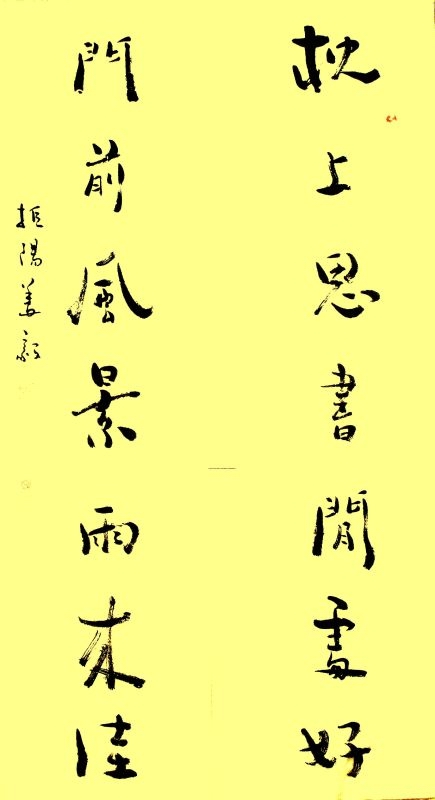 枕上思書閒處好
門前風景雨來佳
陽姜毅